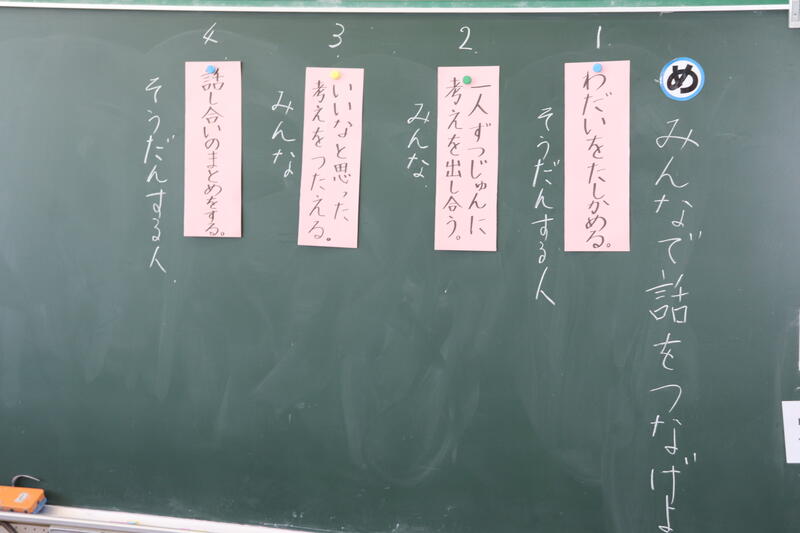 め
みんなで話をつなげよ
1.
わだいをたしかめる。
そうだんする人
2.
一人ずつじゅんに
考えを出し合う。
みんな.
3.
いいなと思った
考えをつたえる。
みんな
4.
話し合いのまとめをする。
そうだんする人.